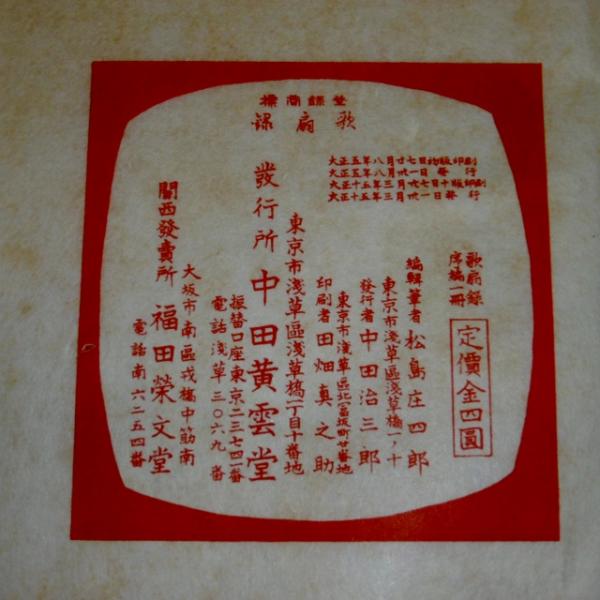 登録商標
歌扇録
大正五年八月廿七日初版印刷
大正五年八月卅一日發行
大正十五年三月廿七日十版印刷
大正十五年三月卅一日發行
歌扇錄
序編一冊
定價金四圓
編輯筆者 松島庄四郎
東京市浅草區浅草橋一ノ十
發行者 中田治三郎
東京市浅草區北富坂町廿番地
印刷者 田畑真之助
東京市浅草區浅草橋一丁目十番地
發行所 中田黄雲堂
振替口座東京二三七四一番
電話浅草三〇六九番
關西發賣所 福田榮文堂
大坂市南區戎橋中筋南
電話南六二五四番